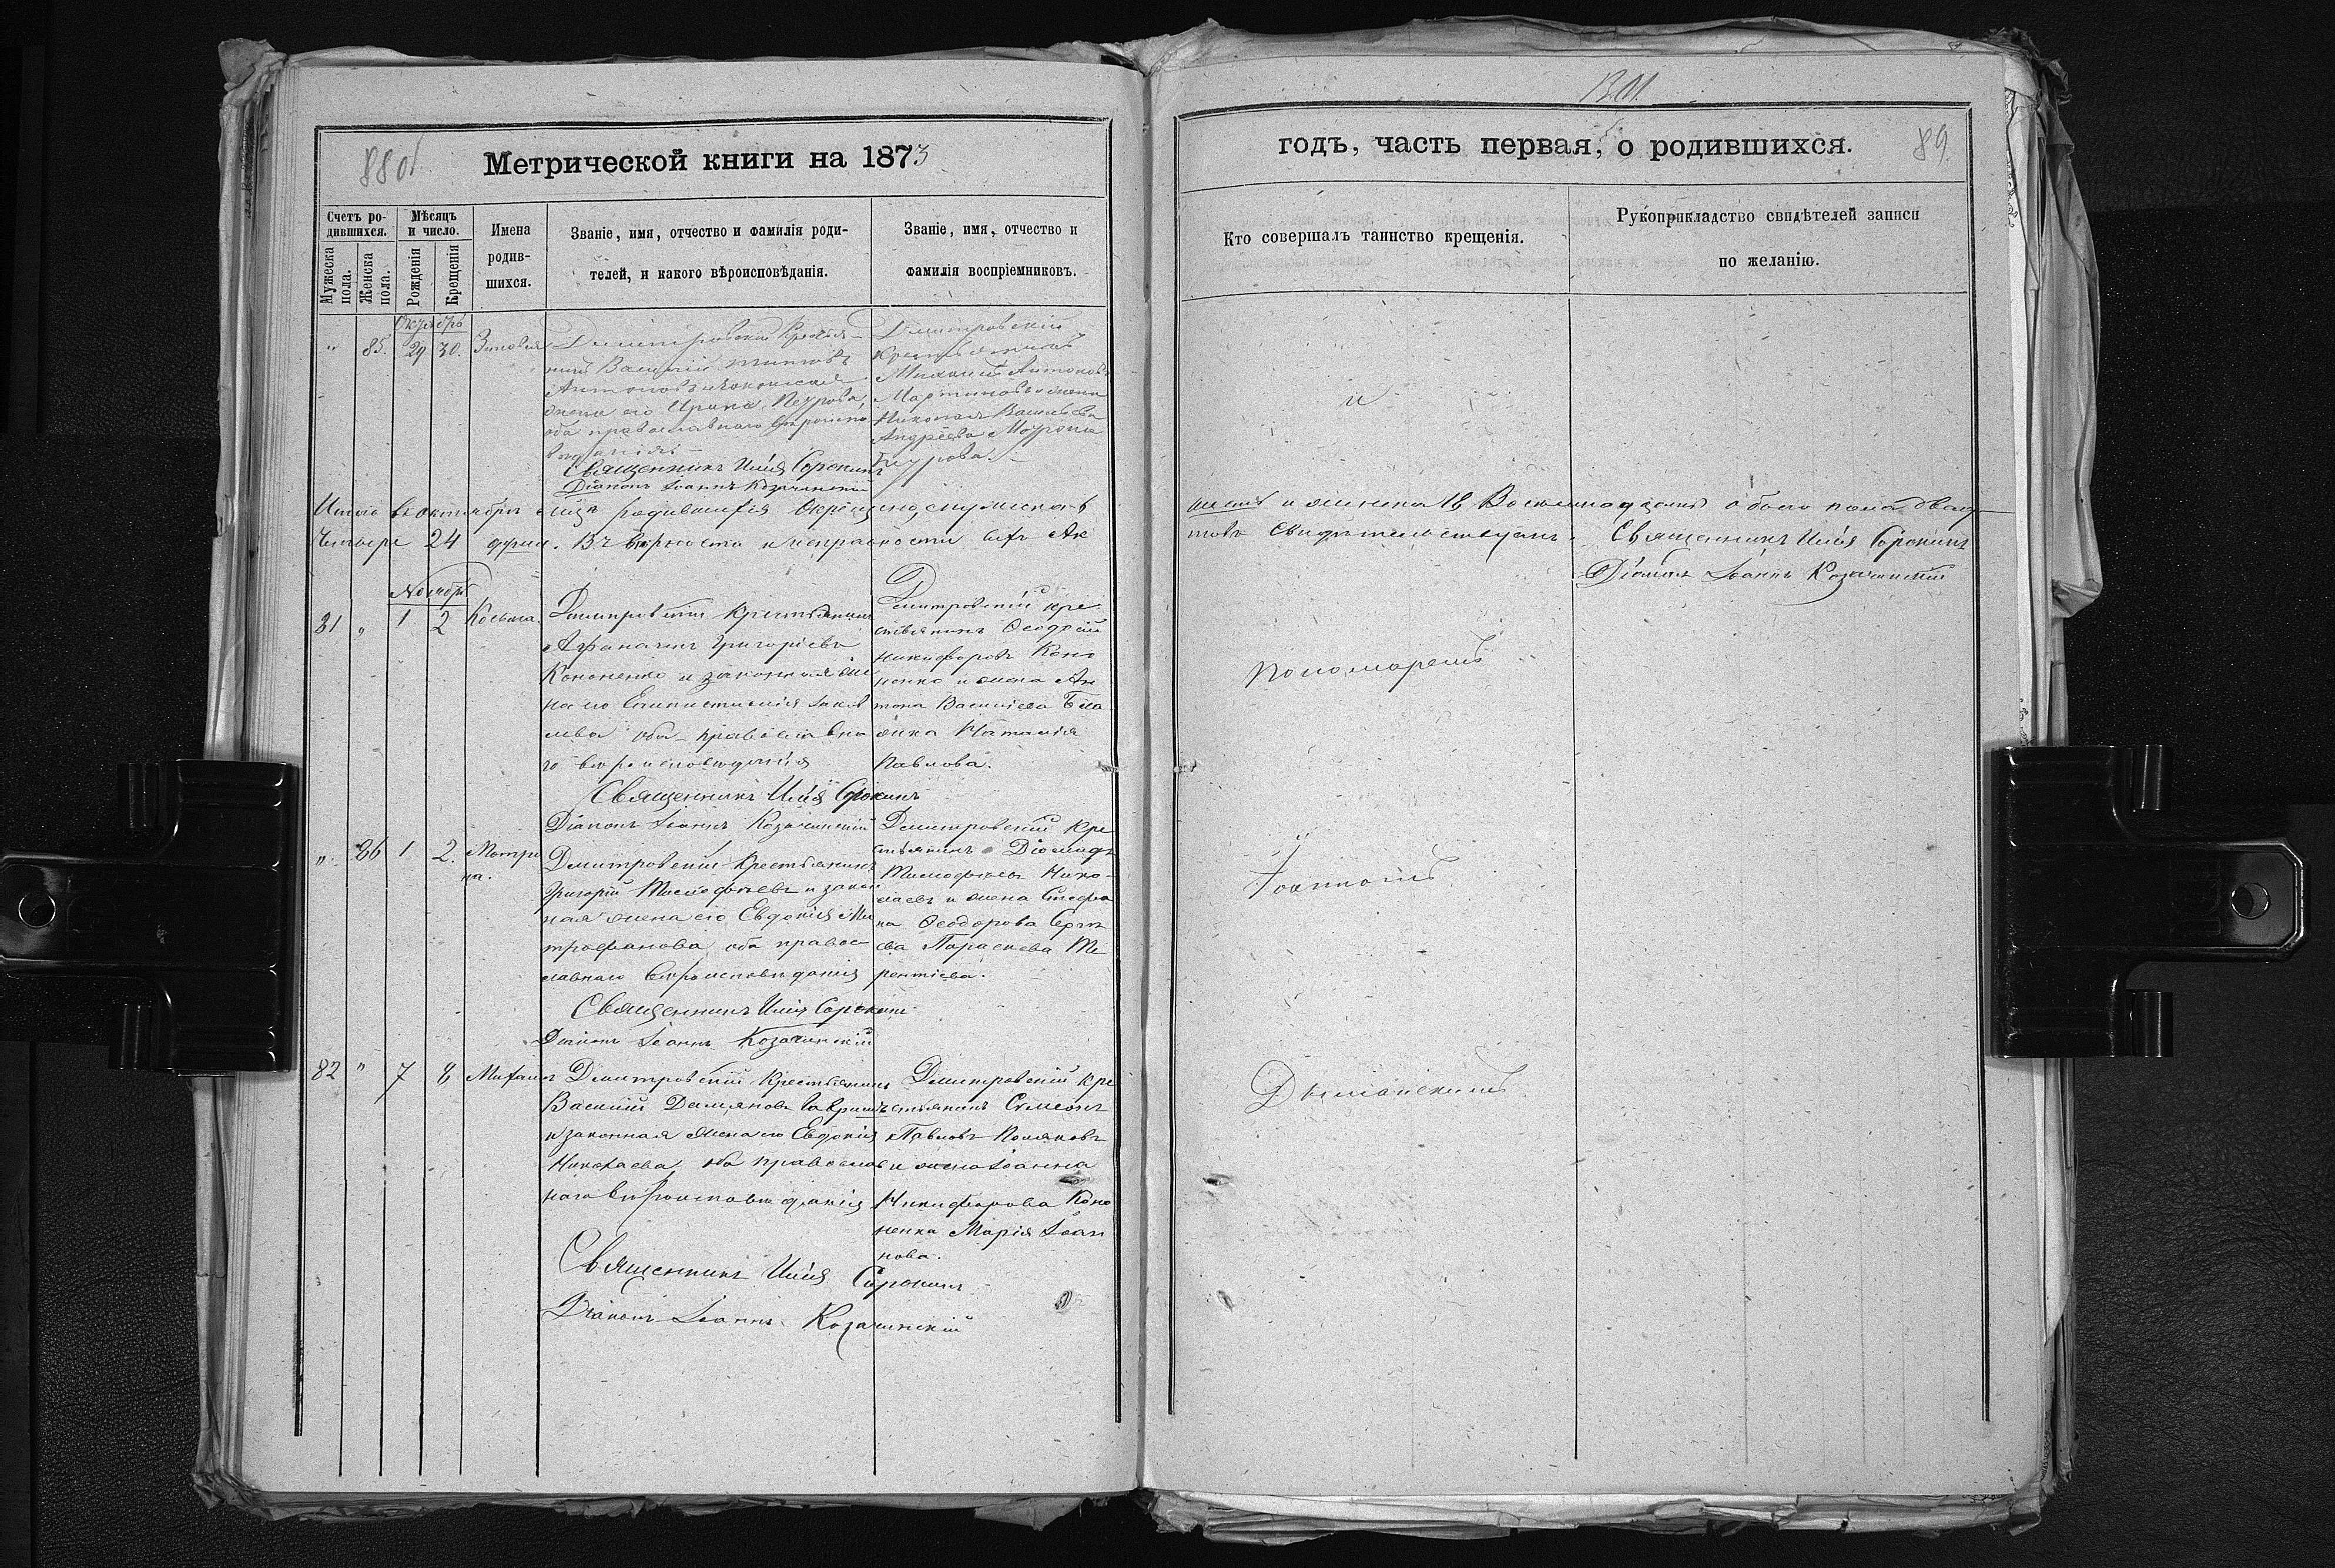 88об.
Метрической книги на 1873
Счетъ ро-
дившихся.
Мѣсяцъ
и число.
Мужеска
пола.
Женска
пола.
Рожденія
Крещенія
Имена
родив-
шихся.
Званіе, имя, отчество и фамилія роди-
телей, и какого вѣроисповѣданія.
Званіе, имя, отчество и
фамилія воспріемниковъ.
Октябрь
" 85. 29 30. Зиновія
Димитровскій Крестья-
нинъ Василій
Антоновъ и законная
жена его Ирина Петрова,
оба православнаго вѣроиспо
вѣданія
Священникъ Илія Сорокинъ
Діаконъ Іоаннъ Козачинскій
Дмитровскій
крестьянинъ
Михаилъ Антоновъ
Мартиновъ и жена
Николая Васильева
Андрѣева Матрона
Петрова.
Итого въ октябрѣ мцѣ родившихся окрещено, мужеска
Четыре 24 душъ. Въ вѣрности и исправности сихъ Ак
Ноябрь
31 " 1 2 Косьма.
Димитровскій крестьянинъ
Аѳанасій Григоріевъ
Кононенко и законная же
на его Епистимія Іаков
лева оба православна
го вѣроисповѣданія
Священникъ Илія Сорокинъ
Діаконъ Іоаннъ Козачинскій
Дмитровскій кре
стьянинъ Ѳеодосій
Никифоровъ Коно
ненко и жена Ан
тона Василіева
Наталія
Павлова.
" 86 1 2. Матро
на.
Дмитровскій Крестьянинъ
Григорій Тимоѳеевъ и закон
ная жена его Евдокія Ми
трофанова оба правос-
лавнаго вѣроисповѣданія
Священникъ Илія Сорокинъ
Діаконъ Іоаннъ Козачинскій
Дмитровскій кре
стьянинъ Діомидъ
Тимоѳеевъ Нико-
лаевъ и жена Стефа
на Ѳеодорова Серге
ева Параскева Те
рентіева.
82 " 7 8 Михаилъ
Дмитровскій Крестьянинъ
Василій Даміановъ
и законная жена его Евдокія
Николаева, оба православ
наго вѣроисповѣданія
Священникъ Илія Сорокинъ
Діаконъ Іоаннъ Козачинскій
Дмитровскій кре
стьянинъ Симеонъ
Павловъ Поляковъ
и жена Іоанна
Никифорова Коно
ненка Марія Іоан
нова.
годъ, часть первая, о родившихся.
89.
Кто совершалъ таинство крещенія.
Рукоприкладство свидѣтелей записи
по желанію.
и
шесть и женска 18 Восемнадцать обоего пола двад
товъ свидѣтельствуемъ. Священникъ Илія Сорокинъ
Діаконъ Іоаннъ Козачинскій
Пономаремъ
Іоанномъ